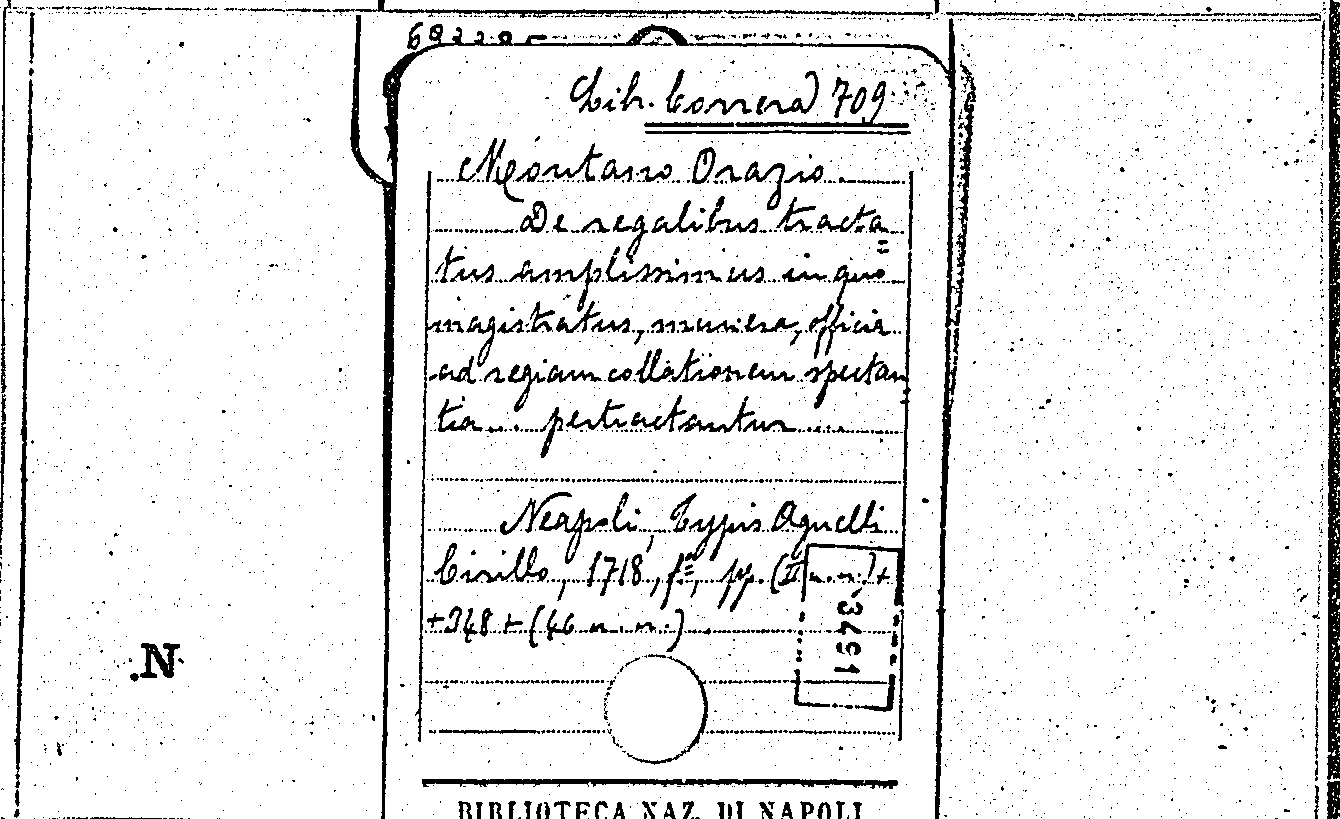 Lib. Correra 709
Montano Orazio.
De regalibus tracta=
tus amplissimus in quo
magistratus, munera, officia
ad regiam collationem spectan=
tia... pertractantur ....
Neapoli, Typis Agnelli
Cirillo, 1718, f°, pp. (II n.n.)+
+348+(46 n.n.)
3491
.N
BIBLIOTECA NAZ. DI NAPOLI